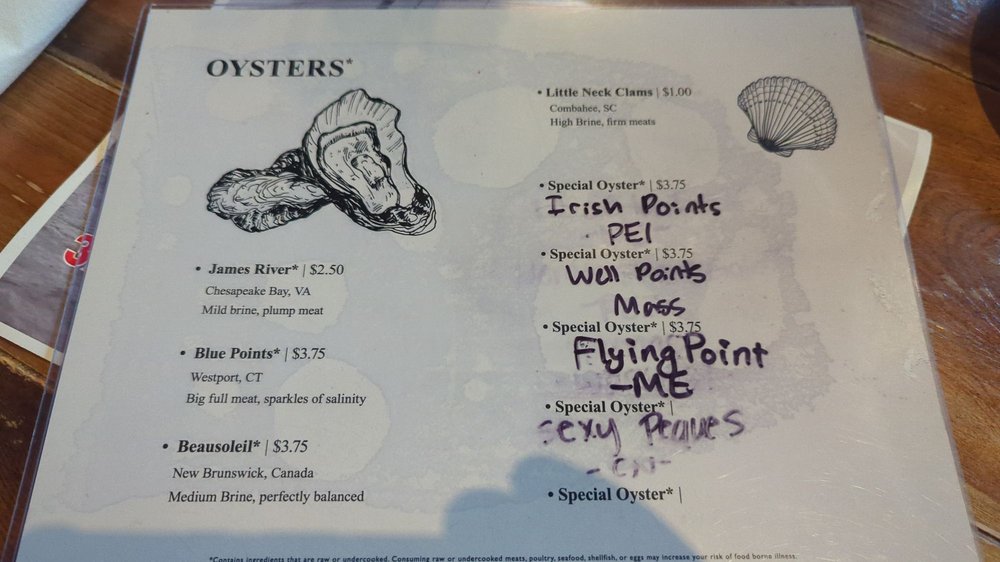 OYSTERS*
• James River* | $2.50
Chesapeake Bay, VA
Mild brine, plump meat
• Blue Points* | $3.75
Westport, CT
Big full meat, sparkles of salinity
• Beausoleil* | $3.75
New Brunswick, Canada
Medium Brine, perfectly balanced
• Little Neck Clams | $1.00
Combahee, SC
High Brine, firm meats
• Special Oyster* | $3.75
Irish Points
PEI
• Special Oyster* | $3.75
Well Points
Mass
• Special Oyster* | $3.75
Flying Point
-ME
• Special Oyster* |
sexy
• Special Oyster* |
*Contains ingredients that are raw or undercooked. Consuming raw or undercooked meats, poultry, seafood, shellfish, or eggs may increase your risk of food borne illness.
3